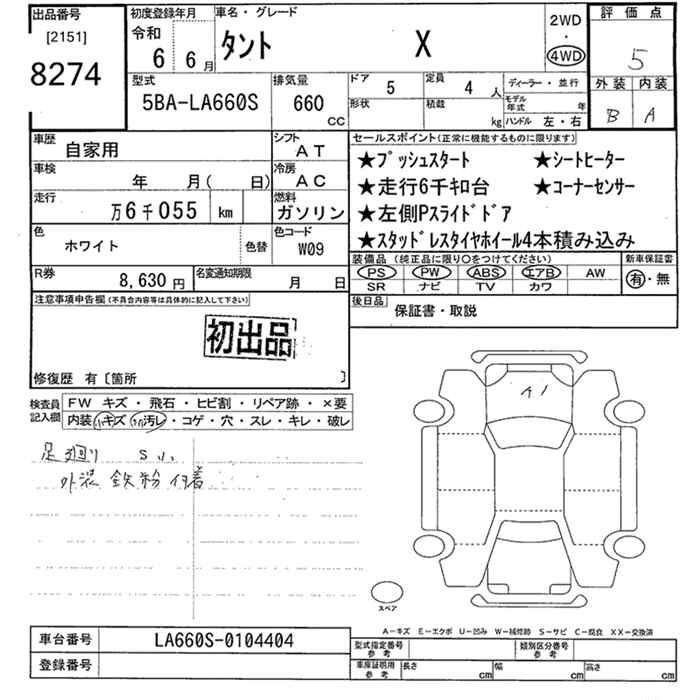 出品番号
[2151]
8274
初度登録年月
令和
6 6月
車名・グレード
タント X
2WD
・
4WD
評価点
5
外装 内装
B A
型式
5BA-LA660S
排気量
660
CC
ドア
5
定員
4 人
形状
積載
kg
ディーラー・並行
モデル年式 年
ハンドル 左・右
車歴
自家用
シフト
AT
車検
年 月( 日)
冷房
AC
走行
万6千055 km
燃料
ガソリン
色
ホワイト
色替
色コード
W09
R券
8,630 円
名変通知期限
月 日
セールスポイント(正常に機能するものに限ります)
★プッシュスタート ★シートヒーター
★走行6千キロ台 ★コーナーセンサー
★左側Pスライドドア
★スタッドレスタイヤホイール4本積み込み
装備品 (純正品に限り○をつけてください)
PS PW ABS エアB AW
SR ナビ TV カワ
新車保証書
有・無
後日品
保証書・取説
注意事項申告欄(不具合内容等は具体的に記入して下さい)
初出品
修復歴 有〔箇所 〕
検査員記入欄
FW キズ・飛石・ヒビ割・リペア跡・×要
内装・キズ・汚レ・コゲ・穴・スレ・キレ・破レ
足廻り S小
外装 鉄粉付着
イノ
スペア
A-キズ E-エクボ U-凹み W-補修跡 S-サビ C-腐食 XX-交換済
車台番号
LA660S-0104404
登録番号
型式指定番号
参考
類別区分番号
参考
車庫証明用
参考
長さ cm
幅 cm
高さ cm